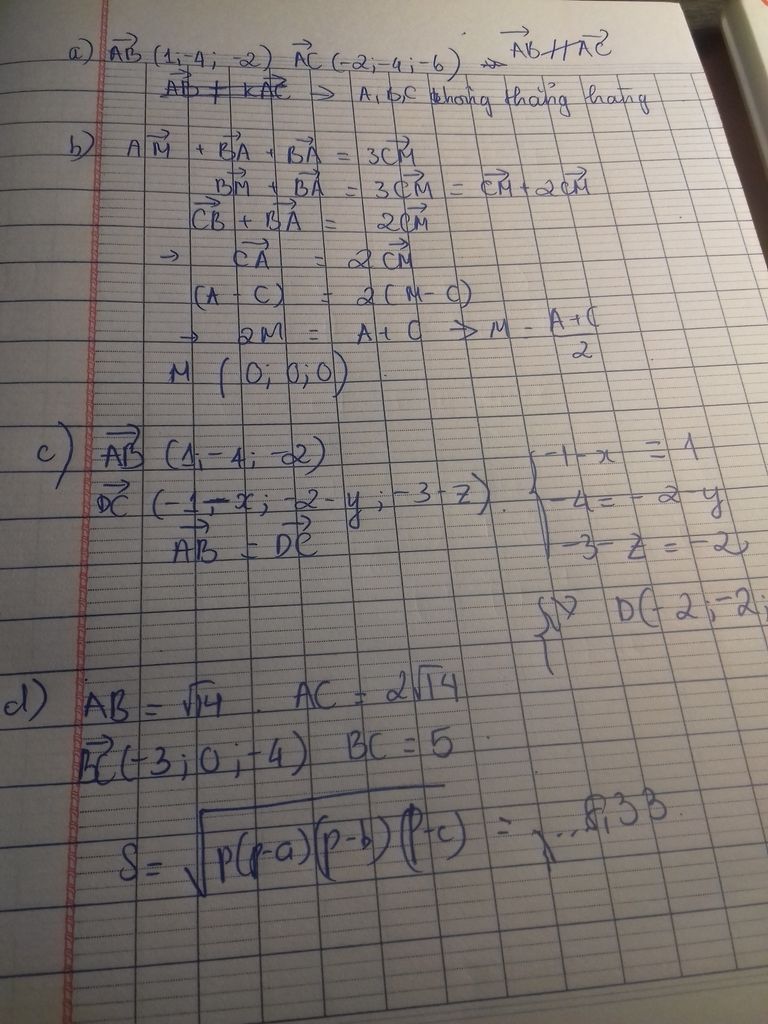 a) AB (1;-4; -2) AC (-2;-4;-6) → AB ∦ AC
AB ≠ kAC → A, B, C không thẳng hàng
b) AM + BA + BA = 3CM
BM + BA = 3CM = CM + 2CM
CB + BA = 2CM
→ CA = 2CM
(A - C) = 2(M - C)
→ 2M = A + C → M = A+C / 2
M (0; 0; 0)
c) AB (1; -4; -2)
DC (-1-x; -2-y; -3-z)
AB = DC
-1-x = 1
-4 = -2-y
-3-z = -2
D(-2; -2;
d) AB = √14 AC = 2√14
BC (-3; 0; -4) BC = 5
S = √p(p-a)(p-b)(p-c) = √... 8,3